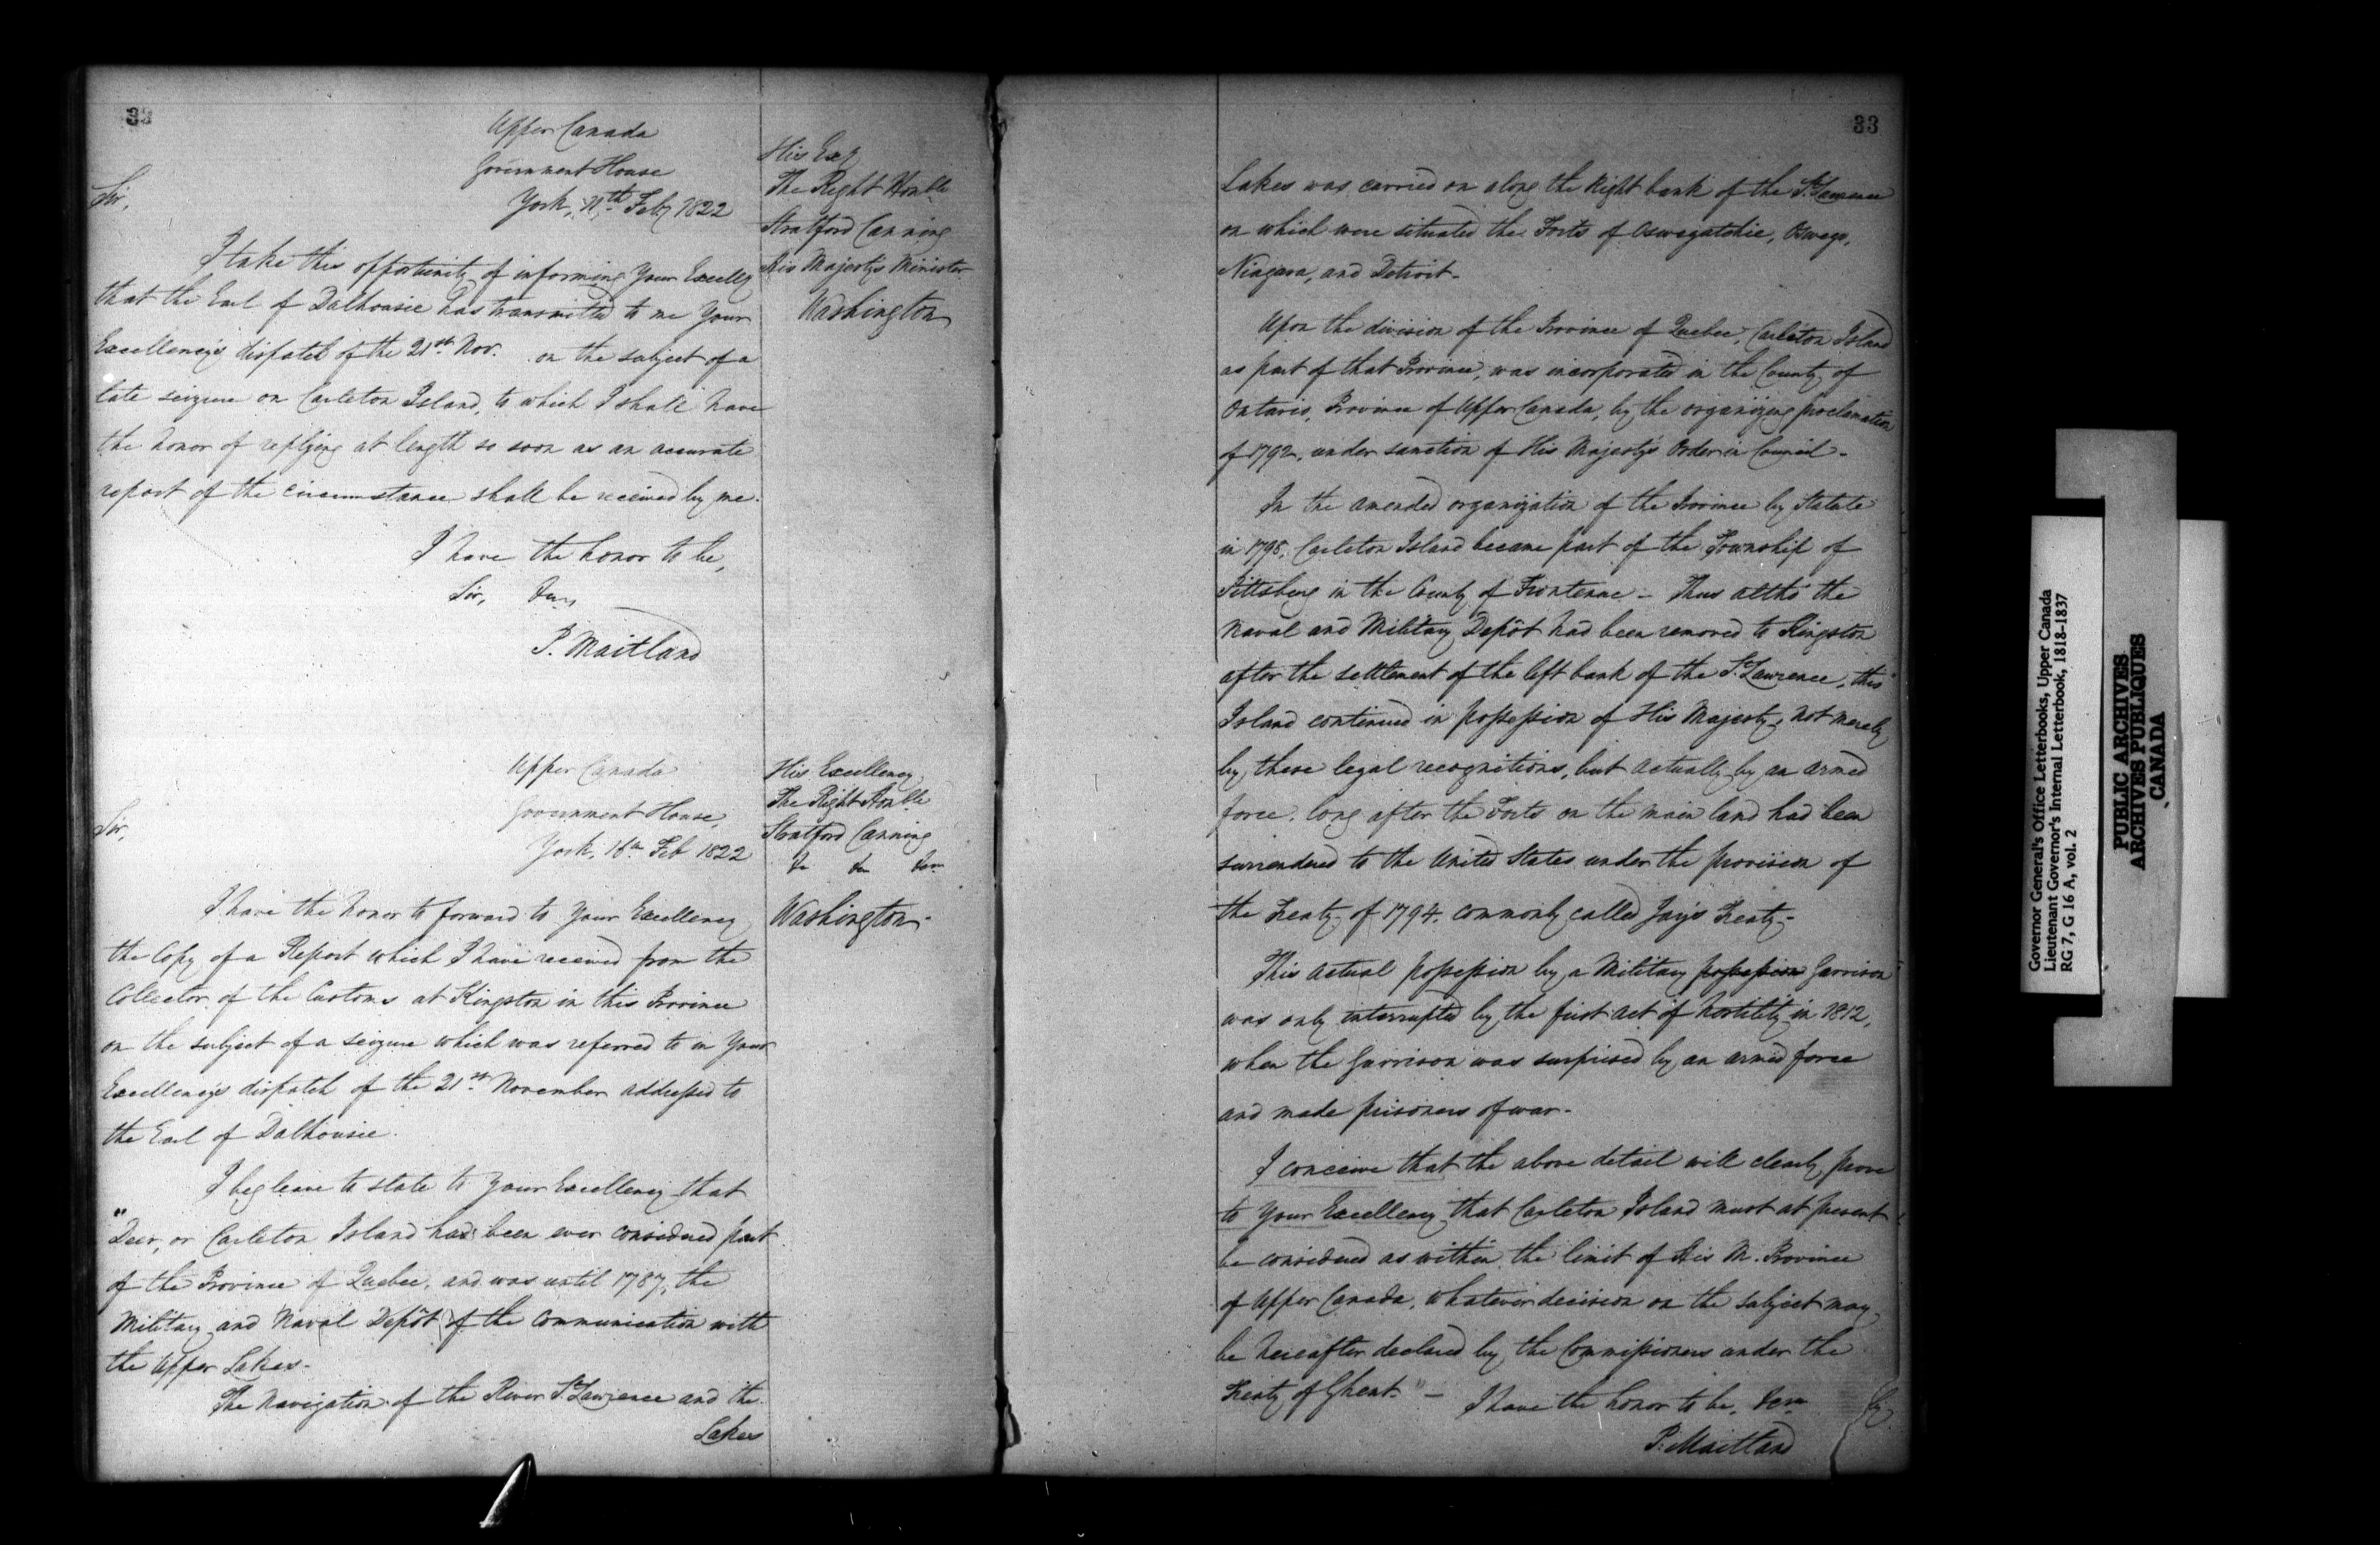 33
Upper Canada
Government House
York, 11th Feby 1822
His Excy
The Right Honble
Stratford Canning
His Majesty's Minister
Washington
Sir,
I take this opportunity of informing Your Excellcy
that the Earl of Dalhousie has transmitted to me Your
Excellency's dispatch of the 21st Nov. on the subject of a
late seizure on Carleton Island, to which I shall have
the honor of replying at length so soon as an accurate
report of the circumstance shall be received by me.
I have the honor to be,
Sir, &c
P. Maitland
Upper Canada
Government House,
York, 16th Feb 1822
His Excellency
The Right Honble
Stratford Canning
&c &c &c
Washington
Sir,
I have the honor to forward to Your Excellency
the Copy of a Report which I have received from the
Collector of the Customs at Kingston in this Province
on the subject of a seizure which was referred to in Your
Excellency's dispatch of the 21st November addressed to
the Earl of Dalhousie.
I beg leave to state to Your Excellency that
"Deer, or Carleton Island has been ever considered part
of the Province of Quebec, and was until 1787, the
Military and Naval Depôt of the communication with
the Upper Lakes-
The Navigation of the River St Lawrence and the
Lakes
33
Lakes was carried on along the Right bank of the St Lawrence
on which were situated the Forts of Oswegatchie, Oswego,
Niagara, and Detroit-
Upon the division of the Province of Quebec, Carleton Island
as part of that Province, was incorporated in the County of
Ontario, Province of Upper Canada, by the organizing proclamation
of 1792, under sanction of His Majesty's Order in Council-
In the amended organization of the Province by Statute
in 1798, Carleton Island became part of the Township of
Pittsburg in the County of Frontenac - Thus altho' the
Naval and Military Depôt had been removed to Kingston
after the settlement of the left bank of the St Lawrence, this
Island continued in possession of His Majesty, not merely
by these legal recognitions, but actually by an armed
force, long after the Forts on the main land had been
surrendered to the United States under the provision of
the Treaty of 1794, commonly called Jay's Treaty-
This actual possession by a Military possession Garrison
was only interrupted by the first act of hostility in 1812,
when the Garrison was surprised by an armed force
and made prisoners of war-
I conceive that the above detail will clearly prove
to Your Excellency that Carleton Island must at present
be considered as within the limit of His M. Province
of Upper Canada, whatever decision on the subject may
be hereafter declared by the Commissioners under the
Treaty of Ghent." - I have the honor to be, &c
P. Maitland
Governor General's Office Letterbooks, Upper Canada
Lieutenant Governor's Internal Letterbook, 1818-1837
RG 7, G 16 A, vol. 2
PUBLIC ARCHIVES
ARCHIVES PUBLIQUES
CANADA